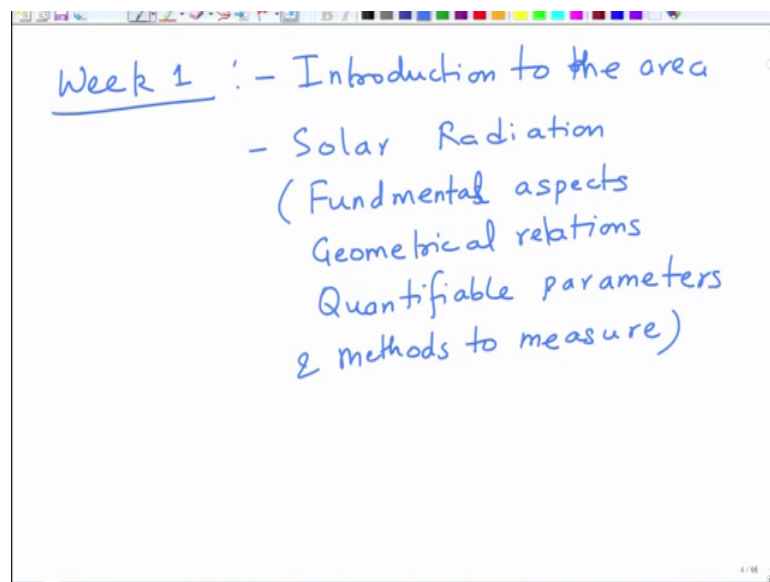 Week 1 :- Introduction to the area
- Solar Radiation
(Fundmental aspects
Geometrical relations
Quantifiable parameters
& methods to measure)
4 / 66